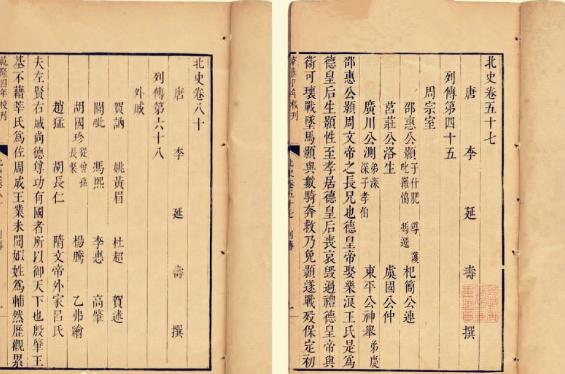 北史卷五十七
唐 李 延 壽 撰
列傳第四十五
周宗室
邵惠公顥 子什肥 導 護 叱羅協 馮遷 杞簡公連
莒莊公洛生 虞國公仲
廣川公測 弟深 深子孝伯 東平公神舉 弟慶
邵惠公顥周文帝之長兄也德皇帝娶樂浪王氏是爲
德皇后生顥性至孝居德皇后喪哀毀過禮德皇帝與
衛可瓌戰墜馬顥與數騎奔救乃免顥遂戰歿保定初
北史卷八十
唐 李 延 壽 撰
列傳第六十八
外戚
賀訥 姚黃眉 杜超 賀迷
閭毗 馮熙 李惠 高肇
胡國珍 從曾孫長粲 楊騰 乙弗繪
趙猛 胡長仁 隋文帝外家呂氏
夫左賢右戚尚德尊功有國者所以御天下也殷肇王
基不藉莘氏爲佐周成王業未聞姒姓爲輔然歷觀累
乾隆四年校刊